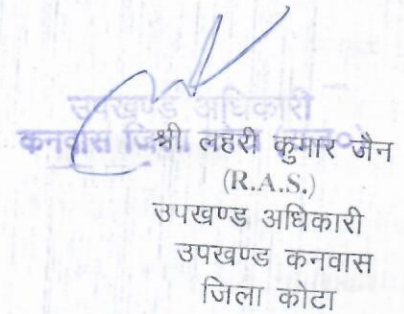 उपखण्ड अधिकारी
कनवास जिला
श्री लहरी कुमार जैन
(R.A.S.)
उपखण्ड अधिकारी
उपखण्ड कनवास
जिला कोटा